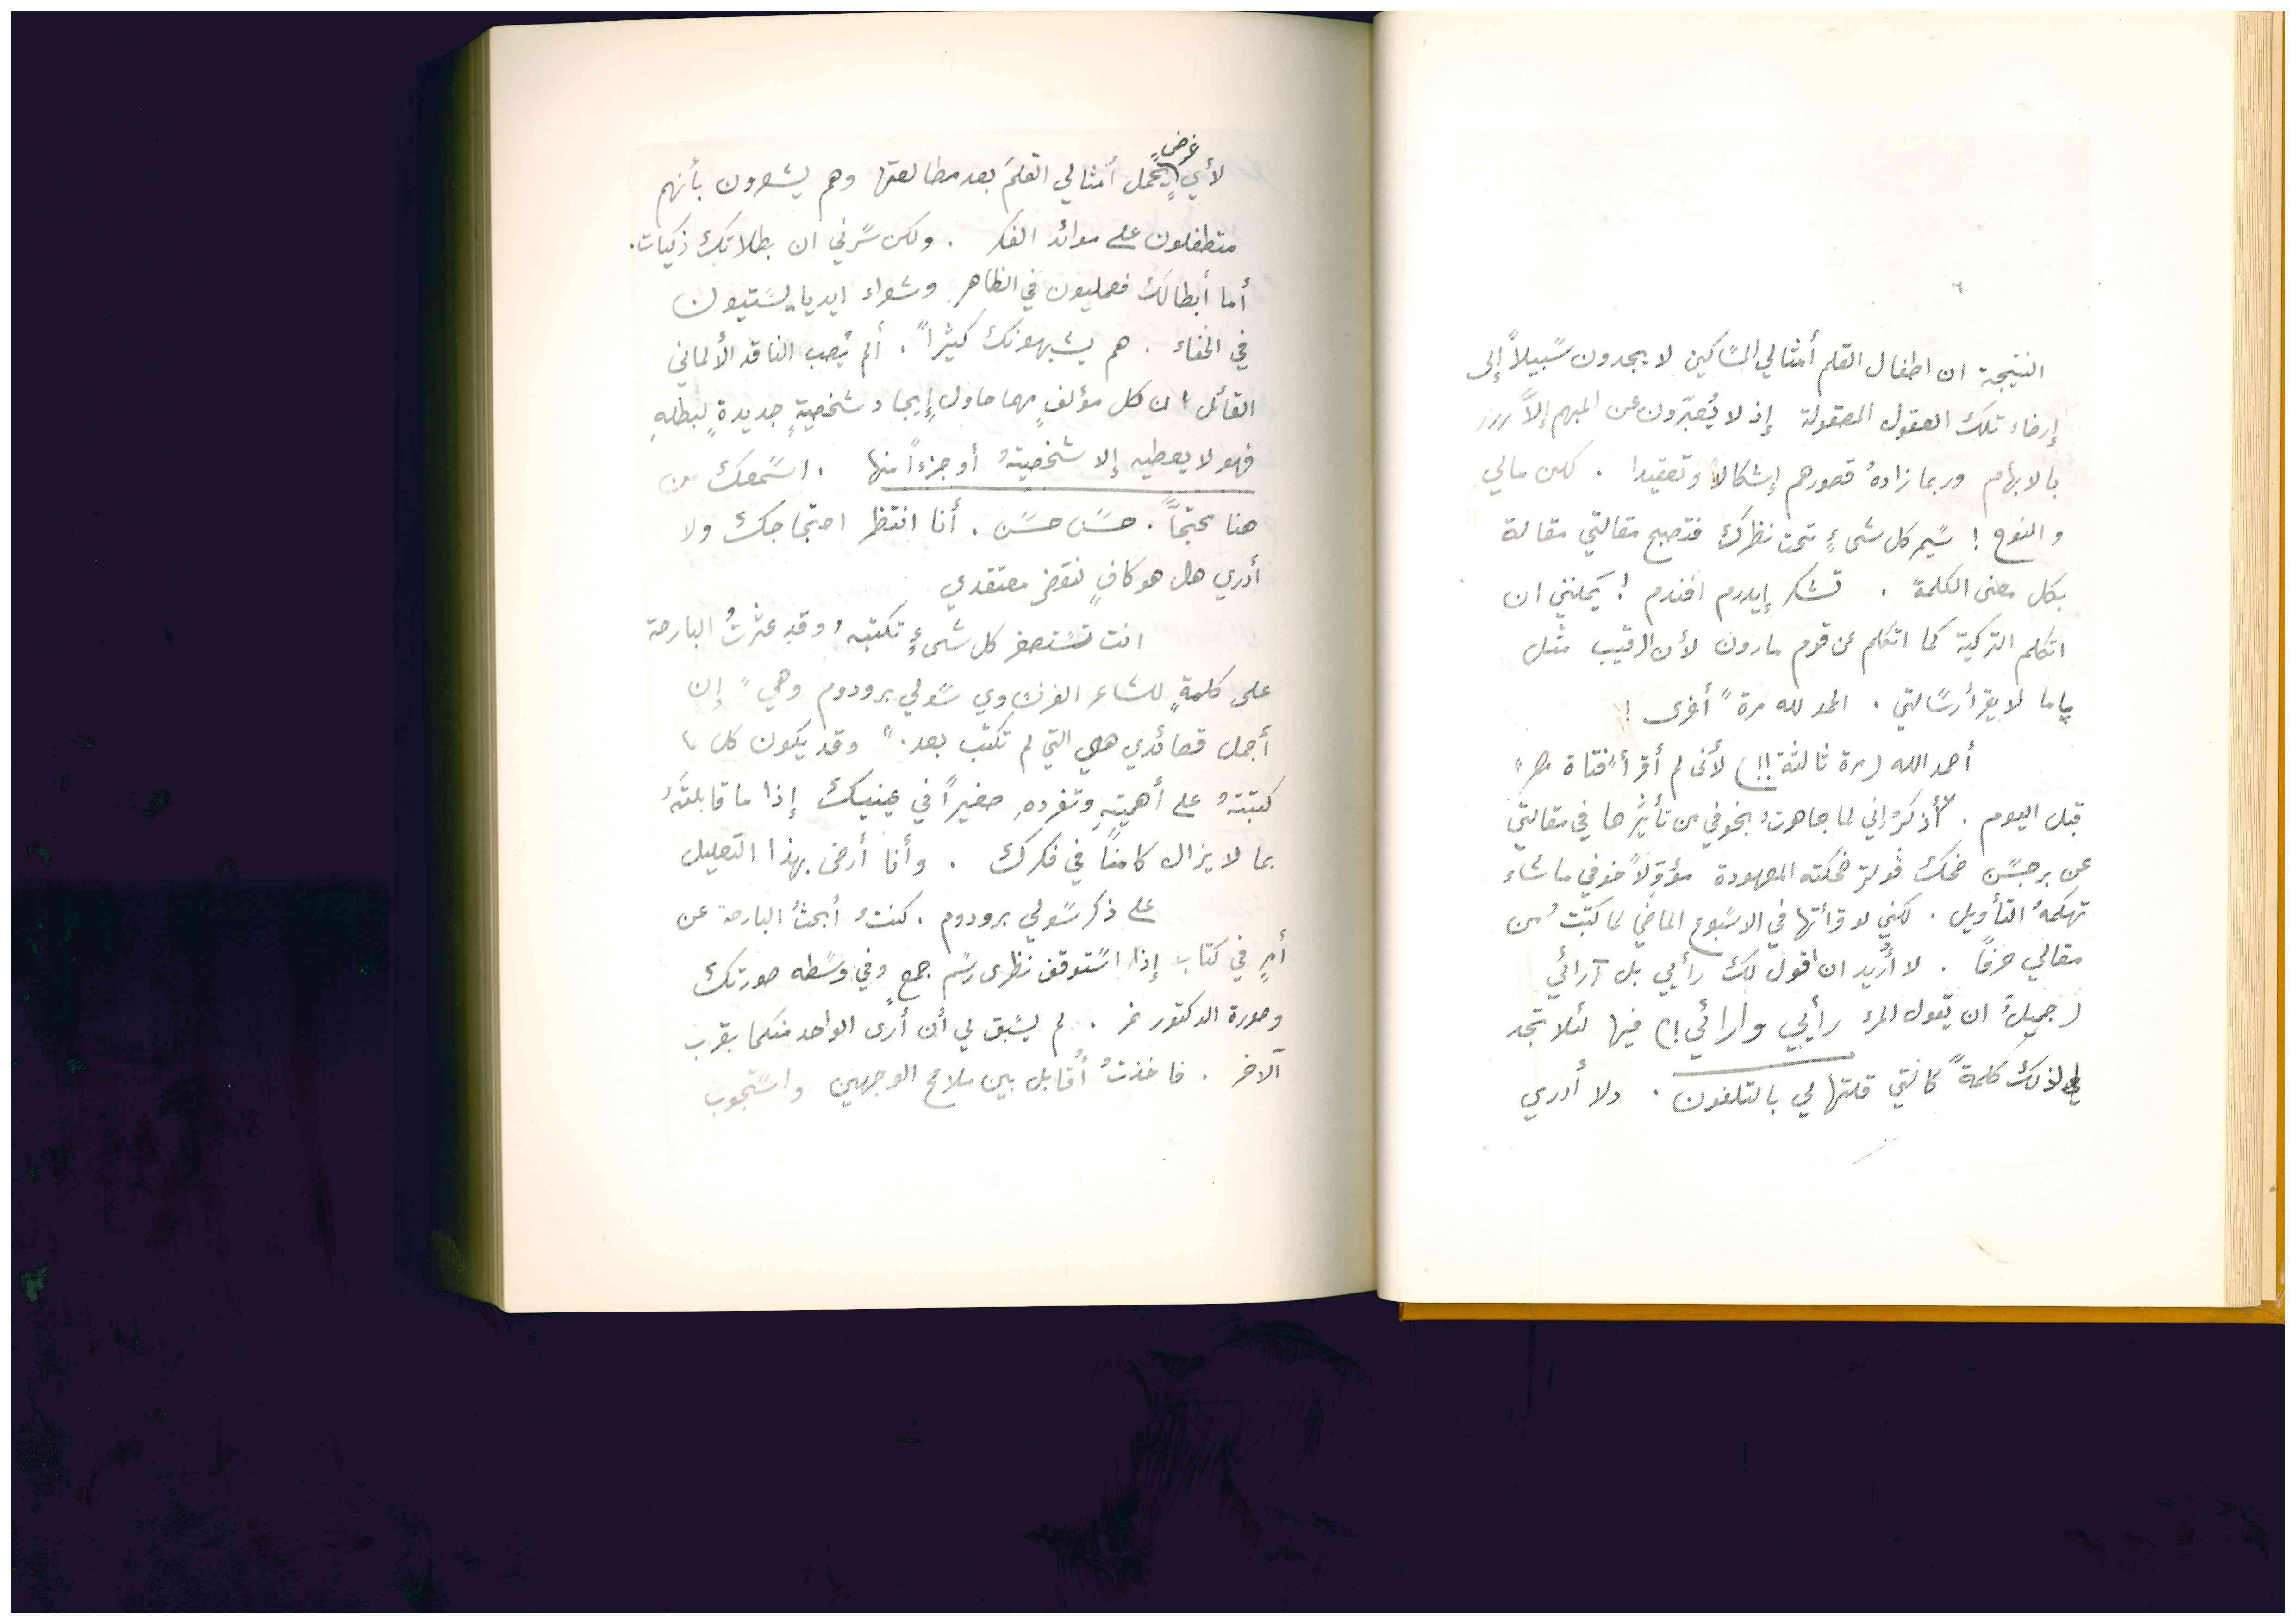 النتيجة ان اطفال القلم أمثالي المساكين لا يجدون سبيلاً إلى
إرضاء تلك العقول المصقولة إذ لا يُعبّرون عن المبهم إلاَّ
بالابهام وربما زادهُ قصورهم إشكالا وتعقيدا . لكن مالي
والنوح ! سَيمر كل شيءٍ تحت نظرك فتصبح مقالتي مقالة
بكل معنى الكلمة . تشكر إيدرم افندم ! يَمكنني ان
اتكلم التركية كما اتكلم عن قوم مارون لأن الرقيب مثل
پاپا لا يقرأ رسالتي . الحمد لله مرةً أخرى !
أحمد الله (مرة ثالثة !!) لأنى لم أقرأ "فتاة مصر"
قبل اليوم . أذكرُ إني لما جاهرتُ بخوفي من تأثيرها في مقالتي
عن برجسن ضحك ڤولتر ضحكته المعهودة مؤوّلاً خوفي ما شاء
تهكمهُ التأويل . لكني لو قرأتها في الاسبوع الماضي لما كتبتُ من
مقالي حرفاً . لا أُريد ان اقول لك رأيي بل آرائي
(جميلٌ ان يقول المرء رأيي وارائي !) فيها لئلا تجد
لي لذلك كلمةً كالتي قلتها لي بالتلفون . ولا أدري
لأي غرضٍ يحمل أمثالي القلمَ بعد مطالعتها وهم يشعرون بأنهم
متطفلون على موائد الفكر . ولكن سرّني ان بطلاتك ذكيات .
أما أبطالك فعمليون في الظاهر وشعراء ايدياليستيون
في الخفاء . هم يشبهونك كثيراً . ألم يُصب الناقد الألماني
القائل ان كل مؤلفٍ مهما حاول إيجاد شخصيةٍ جديدةٍ لبطلهِ
فهو لا يعطيه إلا شخصيتهُ أو جزءاً منها . اسمعك من
هنا محتجّاً . حسَن حسَن . أنا انتظر احتجاجك ولا
أدري هل هو كافٍ لنقض معتقدي
انت تستصغر كل شيءٍ تكتبه وقد عثرتُ البارحة
على كلمةٍ للشاعر الفرنساوي سولي برودوم وهي " إن
أجمل قصائدي هي التي لم تكتب بعد . " وقد يكون كل ما
كتبتهُ على أهميتهِ وتفردهِ صغيراً في عينيك إذا ما قابلتَهُ
بما لا يزال كامناً في فكرك . وأنا أرضى بهذا التعليل
على ذكر سولي برودوم . كنتُ أبحثُ البارحة عن
أمرٍ في كتاب إذا استوقف نظرى رسم جمعٍ وفي وسطه صورتك
وصورة الدكتور نمر . لم يسبق لي أن أرى الواحد منكما بقرب
الآخر . فاخذتُ أُقابل بين ملامح الوجهين واستجوب